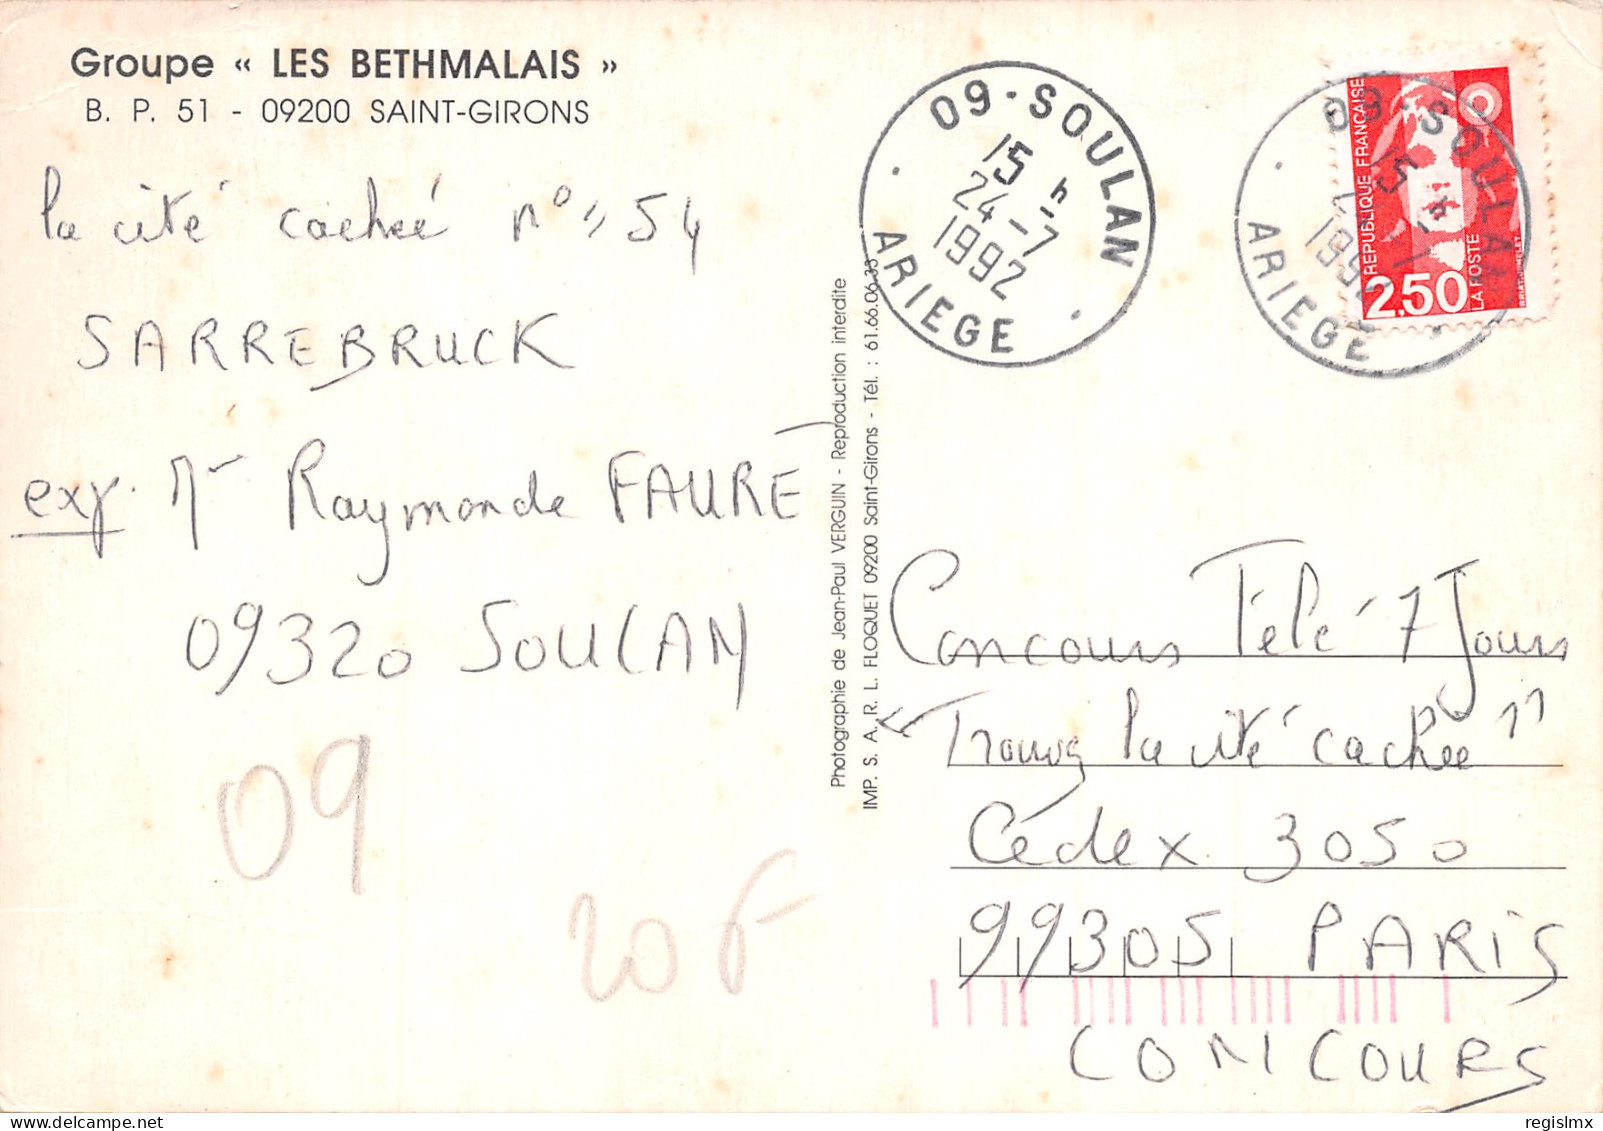 Groupe « LES BETHMALAIS »
B. P. 51 - 09200 SAINT-GIRONS
la cité cachée n° 54
SARREBRUCK
exp. Raymonde FAURE
09320 SOULAN
09
20 F
Photographie de Jean-Paul VERGUIN - Reproduction interdite
IMP. S. A. R. L. FLOQUET 09200 Saint-Girons - Tél. : 61.66.06.33
09-SOULAN
15 h
24-7
1992
ARIEGE
09-SOULAN
15 h
1992
ARIEGE
REPUBLIQUE FRANÇAISE
2,50
LA POSTE
BRIAT-JUMELET
Concours Télé 7 Jours
Trouvez la cité cachée "
Cédex 3050
99305 PARIS
CONCOURS
regislmx